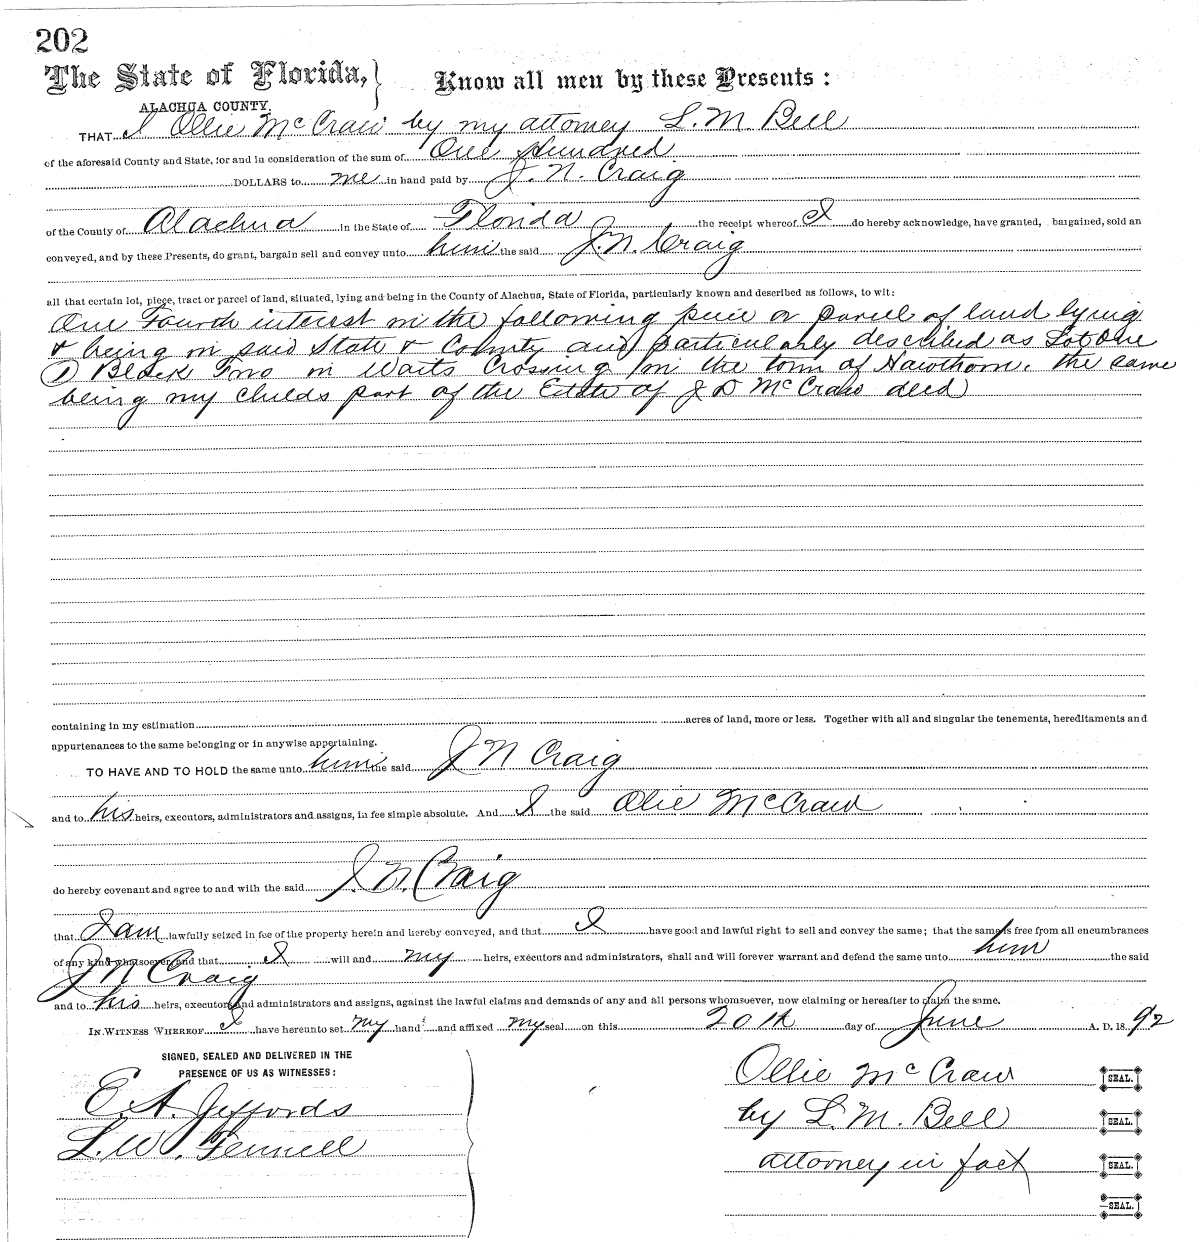 202
The State of Florida,} Know all men by these Presents:
ALACHUA COUNTY.
THAT I Ollie McCraw by my attorney L. M. Bell
of the aforesaid County and State, for and in consideration of the sum of One Hundred
DOLLARS to me in hand paid by J. N. Craig
of the County of Alachua In the State of Florida the receipt whereof I do hereby acknowledge, have granted, bargained, sold an
conveyed, and by these Presents, do grant, bargain sell and convey unto him the said J. N. Craig
all that certain lot, piece, tract or parcel of land, situated, lying and being in the County of Alachua, State of Florida, particularly known and described as follows, to wit:
One Fourth interest in the following piece or parcel of land lying
& being in said State & County and particularly described as Lot One
(1) Block Two in Waits Crossing in the town of Hawthorn. the same
being my childs part of the Estate of J D McCraw decd
containing in my estimation acres of land, more or less. Together with all and singular the tenements, hereditaments and
appurtenances to the same belonging or in anywise appertaining.
TO HAVE AND TO HOLD the same unto him the said J N Craig
and to his heirs, executors, administrators and assigns, in fee simple absolute. And I the said Olie McCraw
do hereby covenant and agree to and with the said J. N. Craig
that I am lawfully seized in fee of the property herein and hereby conveyed, and that I have good and lawful right to sell and convey the same; that the same is free from all encumbrances
of any kind whatsoever, and that I will and my heirs, executors and administrators, shall and will forever warrant and defend the same unto him the said
J N Craig
and to his heirs, executors and administrators and assigns, against the lawful claims and demands of any and all persons whomsoever, now claiming or hereafter to claim the same.
IN WITNESS WHEREOF I have hereunto set my hand and affixed my seal on this 20th day of June A. D. 1892
SIGNED, SEALED AND DELIVERED IN THE
PRESENCE OF US AS WITNESSES:
E. A. Jeffords
L. W. Fennell
Ollie McCraw SEAL.
by L. M. Bell SEAL.
attorney in fact SEAL.
SEAL.